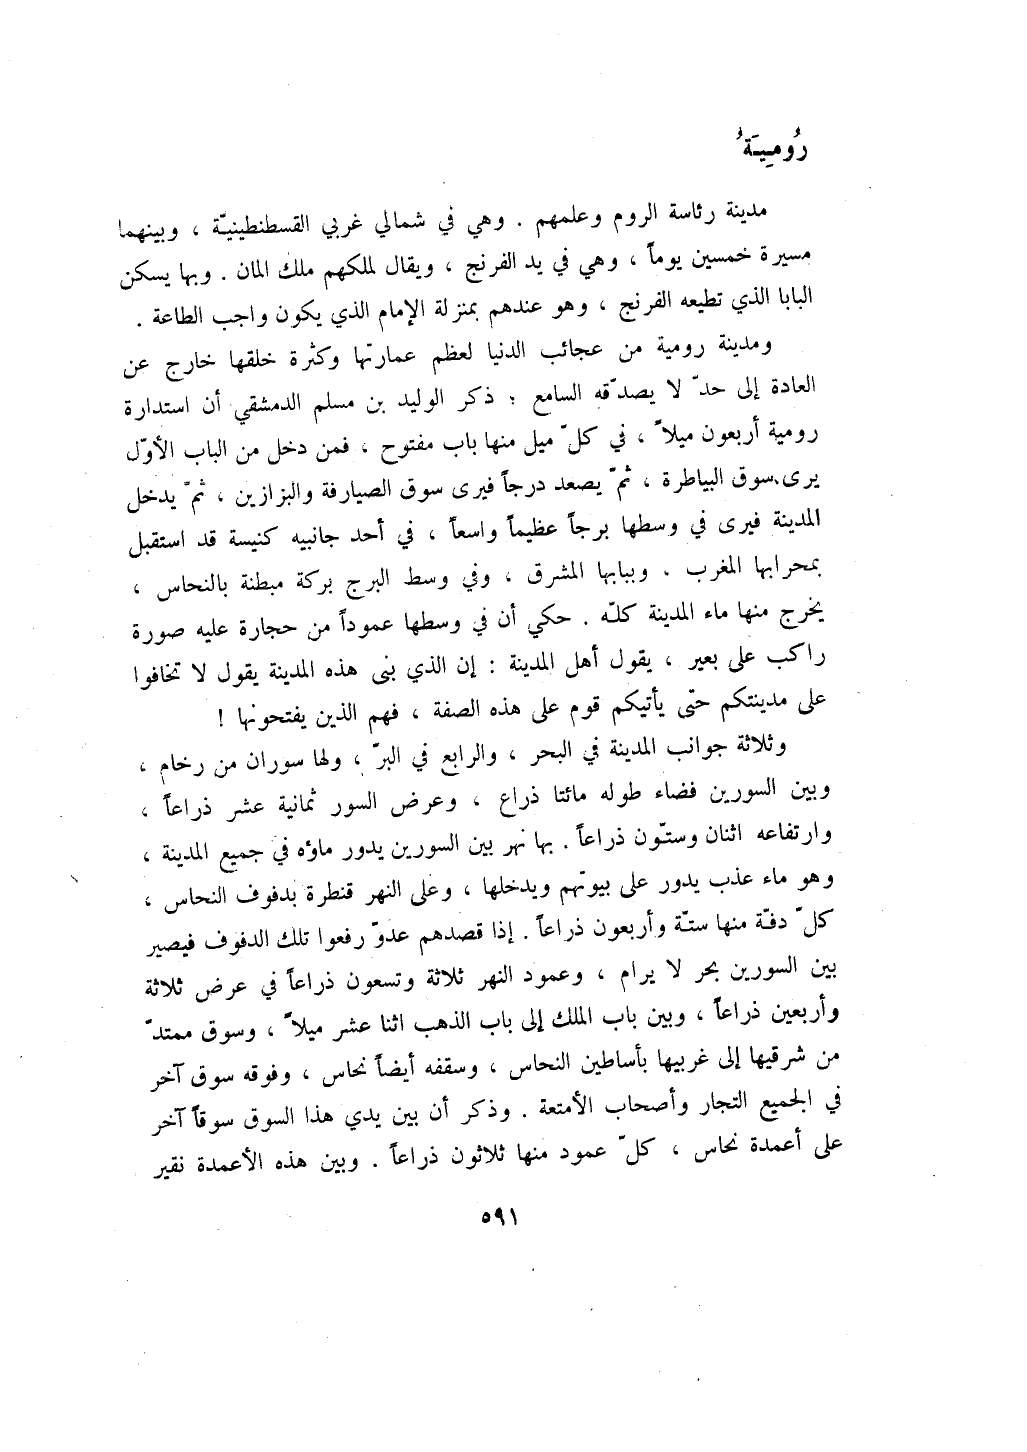 رُومِيَةُ
مدينة رئاسة الروم وعلمهم . وهي في شمالي غربي القسطنطينيّة ، وبينهما
مسيرة خمسين يوماً ، وهي في يد الفرنج ، ويقال لملكهم ملك المان . وبها يسكن
البابا الذي تطيعه الفرنج ، وهو عندهم بمنزلة الإمام الذي يكون واجب الطاعة .
ومدينة رومية من عجائب الدنيا لعظم عمارتها وكثرة خلقها خارج عن
العادة إلى حدّ لا يصدّقه السامع ؛ ذكر الوليد بن مسلم الدمشقي أن استدارة
رومية أربعون ميلاً ، في كلّ ميل منها باب مفتوح ، فمن دخل من الباب الأوّل
يرى سوق البياطرة ، ثمّ يصعد درجاً فيرى سوق الصيارفة والبزازين ، ثمّ يدخل
المدينة فيرى في وسطها برجاً عظيماً واسعاً ، في أحد جانبيه كنيسة قد استقبل
بمحرابها المغرب . وببابها المشرق ، وفي وسط البرج بركة مبطنة بالنحاس ،
يخرج منها ماء المدينة كلّه . حكي أن في وسطها عموداً من حجارة عليه صورة
راكب على بعير ، يقول أهل المدينة : إن الذي بنى هذه المدينة يقول لا تخافوا
على مدينتكم حتّى يأتيكم قوم على هذه الصفة ، فهم الذين يفتحونها !
وثلاثة جوانب المدينة في البحر ، والرابع في البرّ ، ولها سوران من رخام ،
وبين السورين فضاء طوله مائتا ذراع ، وعرض السور ثمانية عشر ذراعاً ،
وارتفاعه اثنان وستّون ذراعاً . بها نهر بين السورين يدور ماؤه في جميع المدينة ،
وهو ماء عذب يدور على بيوتهم ويدخلها ، وعلى النهر قنطرة بدفوف النحاس ،
كلّ دفّة منها ستّة وأربعون ذراعاً . إذا قصدهم عدوّ رفعوا تلك الدفوف فيصير
بين السورين بحر لا يرام ، وعمود النهر ثلاثة وتسعون ذراعاً في عرض ثلاثة
وأربعين ذراعاً ، وبين باب الملك إلى باب الذهب اثنا عشر ميلاً ، وسوق ممتدّ
من شرقيها إلى غربيها بأساطين النحاس ، وسقفه أيضاً نحاس ، وفوقه سوق آخر
في الجميع التجار وأصحاب الأمتعة . وذكر أن بين يدي هذا السوق سوقاً آخر
على أعمدة نحاس ، كلّ عمود منها ثلاثون ذراعاً . وبين هذه الأعمدة نقير
٥٩١